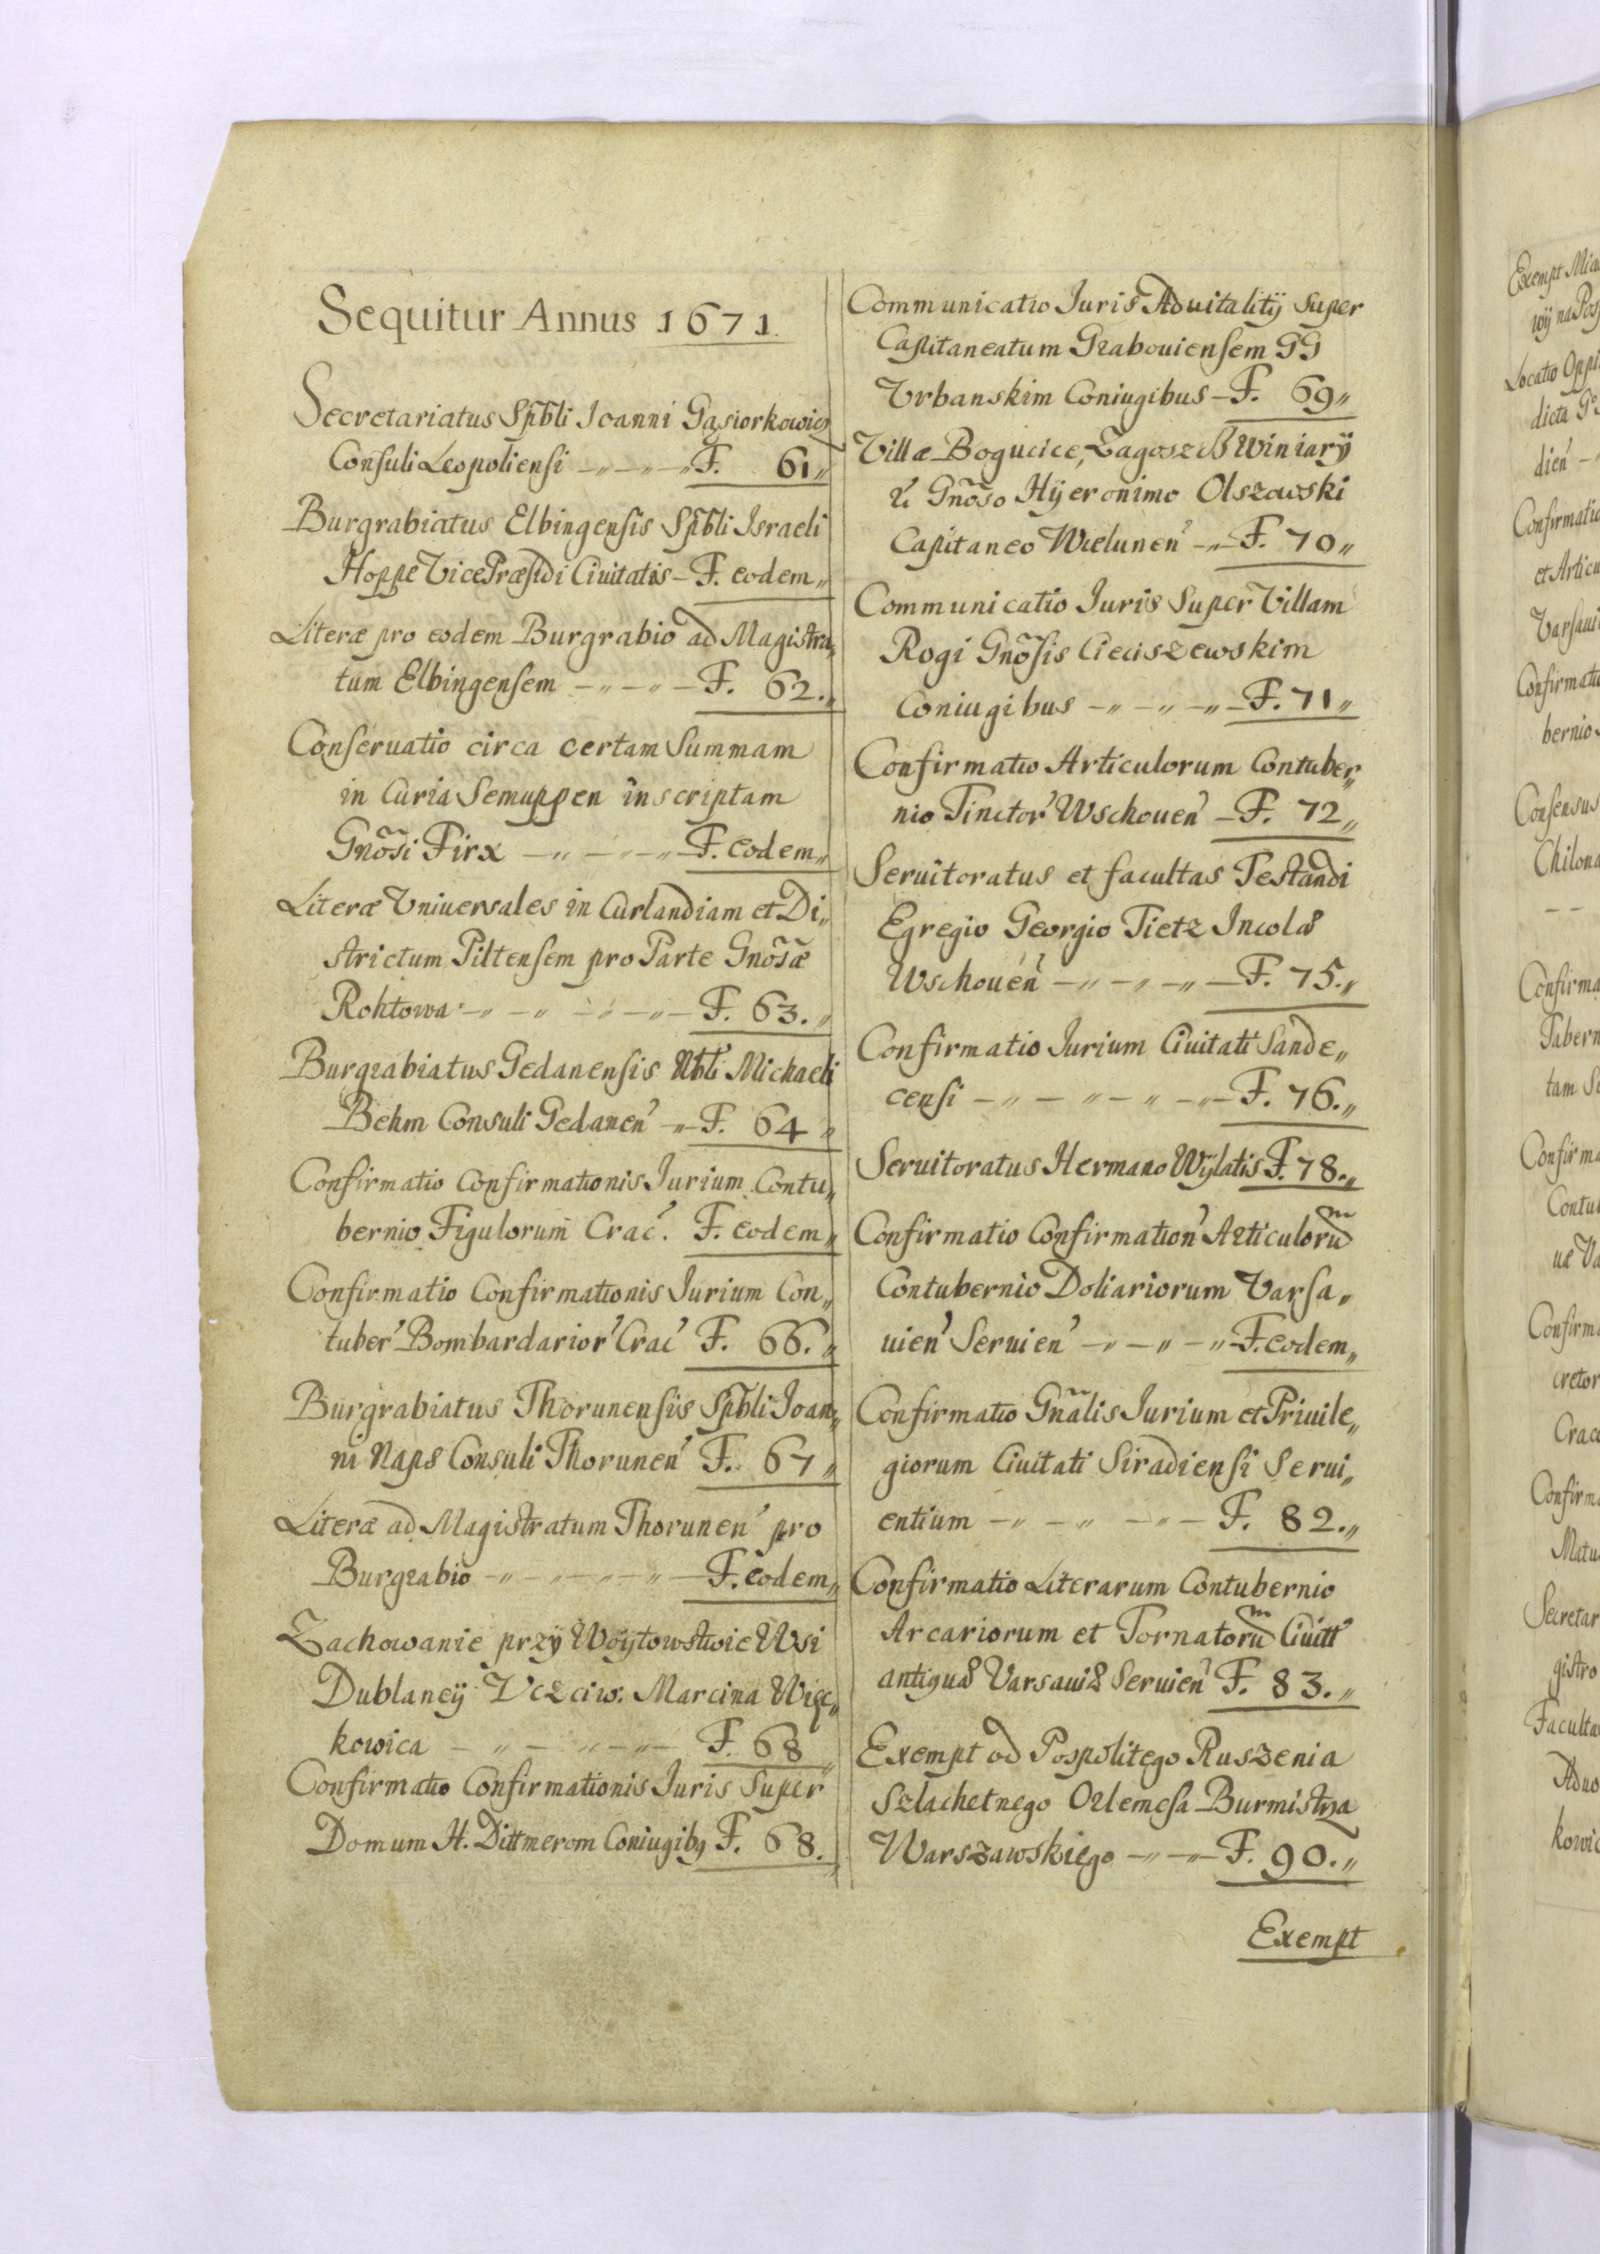 Sequitur Annus 1671.
Secretariatus Spbli Ioanni Gąsiorkowicz
Consuli Leopoliensi -„-„-„F. 61„
Burgrabiatus Elbingensis Spbli Israeli
Hoppe Vice Præsidi Ciuitatis - F. eodem„
Literæ pro eodem Burgrabio ad Magistra„
tum Elbingensem -„-„- F. 62.„
Conseruatio circa certam Summam
in Curia Semuppen inscriptam
Gnõsi Firx -„-„-„- F. eodem„
Literæ Vniuersales in Curlandiam et Di„
strictum Piltensem pro Parte Gnõsæ
Rohtowa -„-„-„-„- F. 63.„
Burgrabiatus Gedanensis Nbli Michaeli
Behm Consuli Gedanen' -„- F. 64„
Confirmatio Confirmationis Iurium Contu„
bernio Figulorum Crac'. F. eodem„
Confirmatio Confirmationis Iurium Con„
tuber' Bombardarior' Crac' F. 66.„
Burgrabiatus Thorunensis Spbli Ioan„
ni Naps Consuli Thorunen' F. 67„
Literæ ad Magistratum Thorunen' pro
Burgrabio -„-„-„-„- F. eodem„
Zachowanie przÿ Woÿtowstwie Wsi
Dublaneÿ Vczciw. Marcina Więc„
kowica -„-„-„- F. 68„
Confirmatio Confirmationis Iuris Super
Domum H. Dittmerom Coniugibq F. 68.
Communicatio Iuris Aduitalitÿ Super
Capitaneatum Grabouiensem GG
Vrbanskim Coniugibus - F. 69„
Villæ Bogucice, Zagosz Winiarÿ
Gnõso Hÿeronimo Olszowski
Capitaneo Wielunen' -„- F. 70„
Communicatio Iuris Super Villam
Rogi Gnõsis Cieciszewskim
Coniugibus -„-„-„- F. 71„
Confirmatio Articulorum Contuber„
nio Tinctor' Wschouen' - F. 72„
Seruitoratus et facultas Testandi
Egregio Georgio Tietz Incolæ
Wschouen' -„-„-„- F. 75.„
Confirmatio Iurium Ciuitati Sande„
censi -„-„-„-„- F. 76.„
Seruitoratus Hermano Wÿlatis F. 78.„
Confirmatio Confirmation' Articulorum
Contubernio Doliariorum Varsa„
uien' Seruien' -„-„-„- F. eodem„
Confirmatio Gnãlis Iurium et Priuile„
giorum Ciuitati Siradiensi Serui„
entium -„-„-„- F. 82.„
Confirmatio Literarum Contubernio
Arcariorum et Tornatorum Ciuitt'
antiquæ Varsauiæ Seruien' F. 83.„
Exempt od Pospolitego Ruszenia
Szlachetnego Orlemesa Burmistrza
Warszawskiego -„-„- F. 90.„
Exempt
Exempt
Locatio
dicta
dien'
Confirmatio
et
Confirma
bernio
Consensus
Confirma
tam
Confirma
Confirma
cretor
Confirma
Secretar
gistro
Faculta